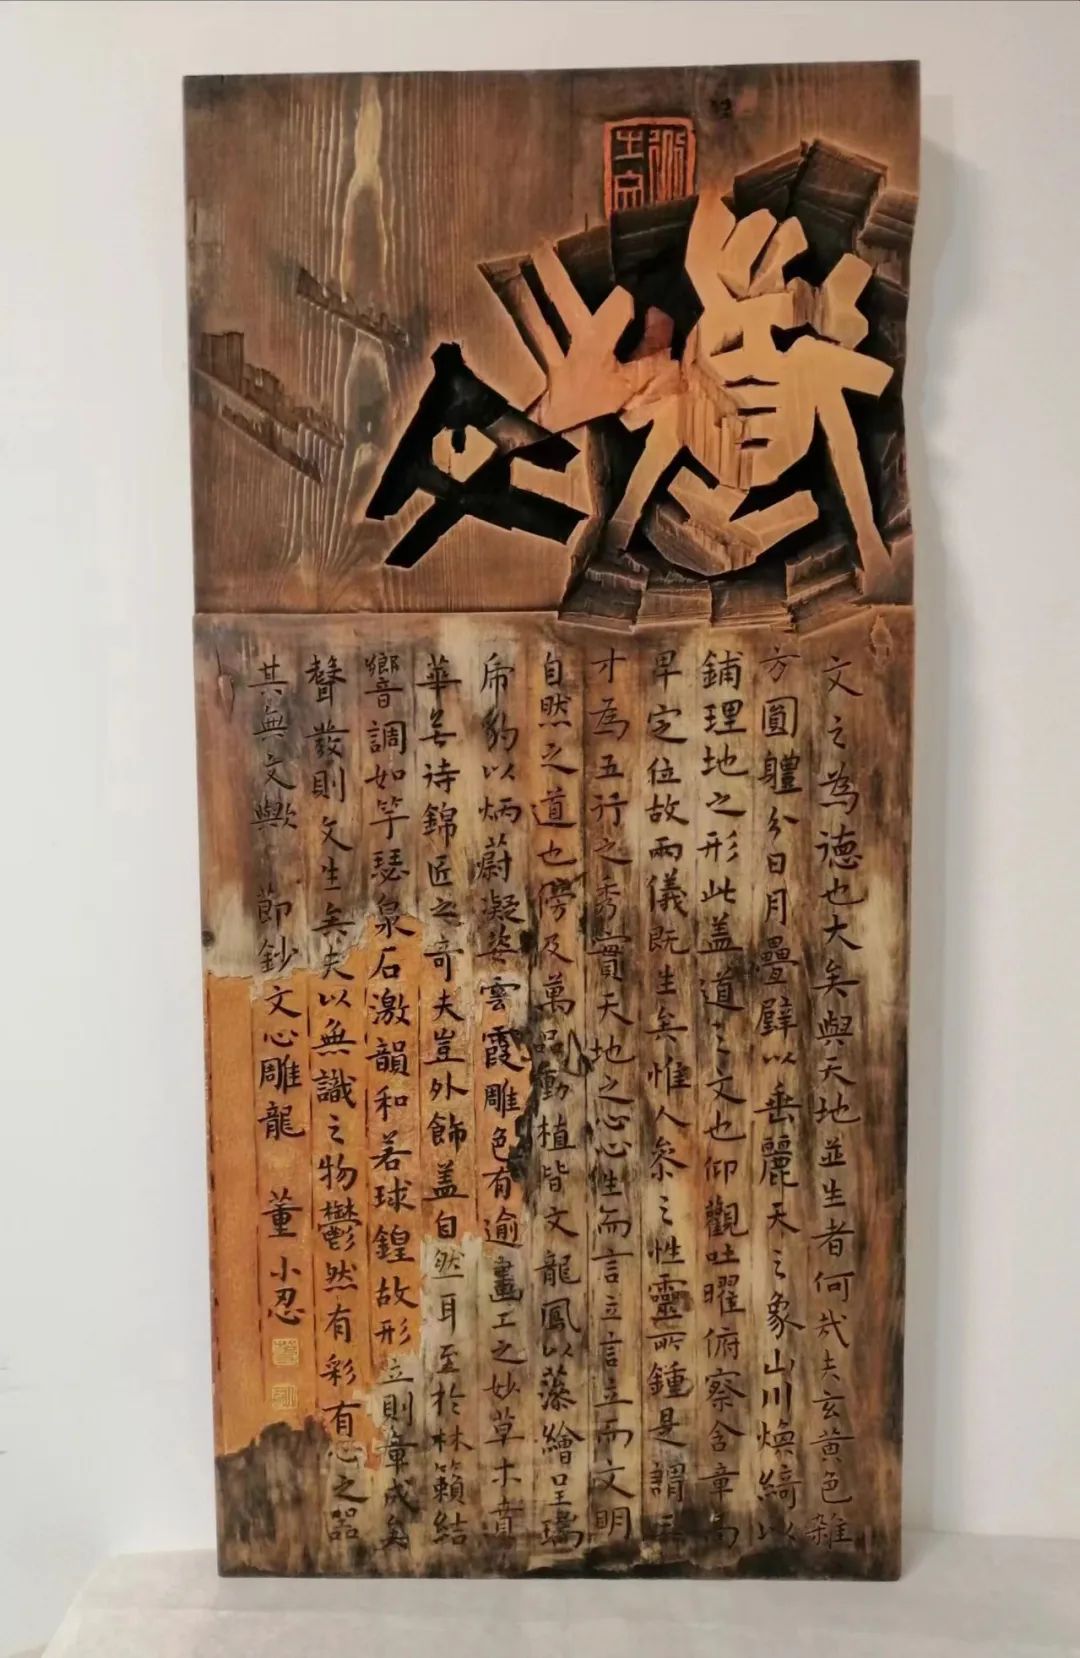 文之為德也大矣與天地並生者何哉夫玄黃色雜
方圓軆分日月疊璧以垂麗天之象山川煥綺以
鋪理地之形此盖道之文也仰觀吐曜俯察含章高
卑定位故兩儀既生矣惟人叅之性靈所鍾是謂三
才為五行之秀實天地之心心生而言立言立而文明
自然之道也傍及萬品動植皆文龍鳳以藻繪呈瑞
虎豹以炳蔚凝姿雲霞雕色有逾畫工之妙草木賁
華無待錦匠之奇夫豈外飾盖自然耳至於林籟結
響調如竽瑟泉石激韻和若球鍠故形立則章成矣
聲發則文生矣夫以無識之物鬱然有彩有心之器
其無文歟 節鈔文心雕龍 董小忍